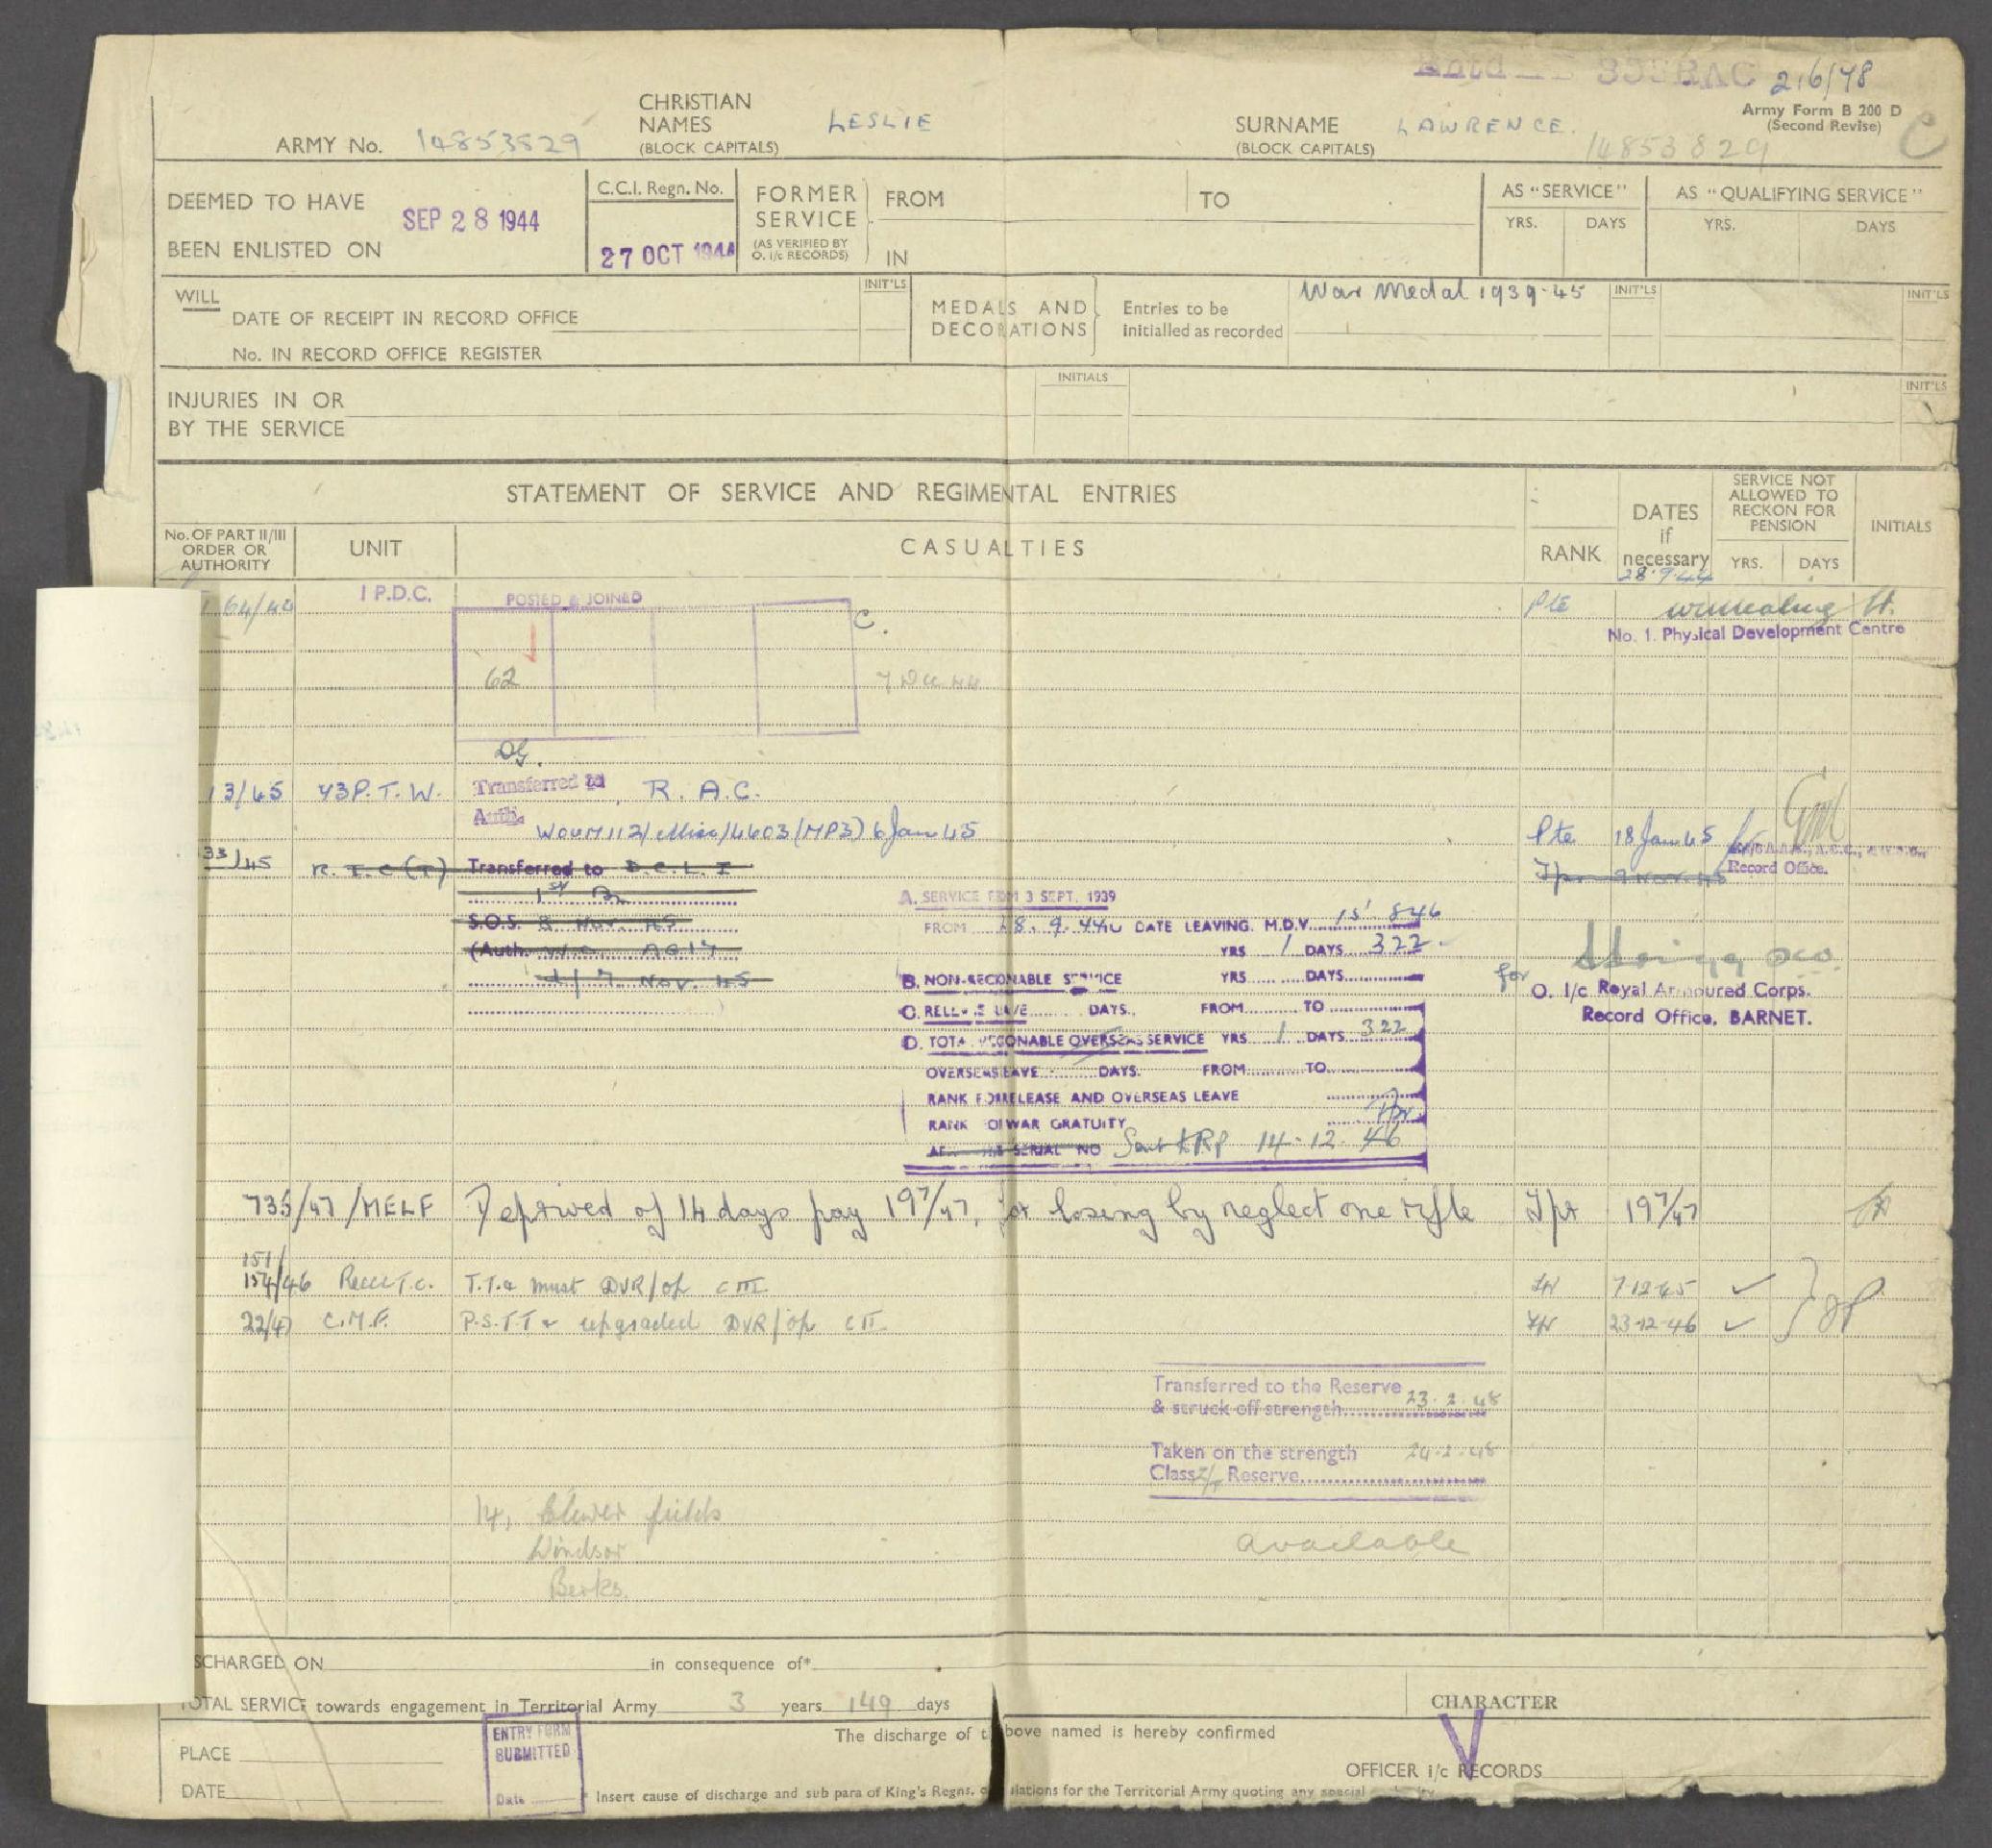 2/6/48
Army Form B 200 D
(Second Revise)
C
ARMY No. 14853829
CHRISTIAN NAMES (BLOCK CAPITALS) LESLIE
SURNAME (BLOCK CAPITALS) LAWRENCE.
14853829
DEEMED TO HAVE BEEN ENLISTED ON SEP 28 1944
C.C.I. Regn. No.
27 OCT 1944
FORMER SERVICE (AS VERIFIED BY O. i/c RECORDS)
FROM
TO
IN
AS "SERVICE"
YRS. DAYS
AS "QUALIFYING SERVICE"
YRS. DAYS
WILL
DATE OF RECEIPT IN RECORD OFFICE
No. IN RECORD OFFICE REGISTER
INIT'LS
MEDALS AND DECORATIONS
Entries to be initialled as recorded
War Medal 1939-45
INIT'LS
INIT'LS
INJURIES IN OR BY THE SERVICE
INITIALS
INIT'LS
STATEMENT OF SERVICE AND REGIMENTAL ENTRIES
No. OF PART II/III ORDER OR AUTHORITY
UNIT
CASUALTIES
RANK
DATES if necessary
SERVICE NOT ALLOWED TO RECKON FOR PENSION
YRS. DAYS
INITIALS
28.9.44
1 P.D.C.
POSTED & JOINED
C.
Pte
Lt.
No. 1. Physical Development Centre
62
7 Dec 44
13/45 43 P.T.W. Transferred to R.A.C.
Auth. 6 Jan 45
Pte 18 Jan 45
Record Office.
33/45
Transferred to D.C.L.I
1st Bn
S.O.S. 8 Nov. 45
(Auth. W.O. AG17
d/7 Nov. 45
Tpr 9 Nov 45
A. SERVICE FROM 3 SEPT. 1939
FROM 28.9.44 TO DATE LEAVING. M.D.V. 15.8.46
YRS 1 DAYS 322
B. NON-RECONABLE SERVICE YRS DAYS
C. RELEASE LEAVE DAYS. FROM TO
D. TOTAL RECONABLE OVERSEAS SERVICE YRS 1 DAYS 322
OVERSEAS LEAVE DAYS. FROM TO
RANK FOR RELEASE AND OVERSEAS LEAVE
RANK FOR WAR GRATUITY Tpr.
SERIAL NO Sent RP 14.12.46
for O. I/c Royal Armoured Corps.
Record Office, BARNET.
735/47/MELF Deprived of 14 days pay 19/7/47, for losing by neglect one rifle Tpr 19/7/47
151/
154/46 T.T. & must DVR/op CIII 7-12-45
22/47 C.M.F. P.S.T.T & upgraded DVR/op CII 23-12-46
Transferred to the Reserve
& struck off strength 23.2.48
Taken on the strength 24.2.48
Class Reserve
14, Clewer fields
Windsor
Berks.
available
SCHARGED ON in consequence of*
TOTAL SERVICE towards engagement in Territorial Army 3 years 149 days
CHARACTER
ENTRY FORM
SUBMITTED
Date
The discharge of the above named is hereby confirmed
PLACE
OFFICER i/c RECORDS
DATE
Insert cause of discharge and sub para of King's Regns. lations for the Territorial Army quoting any special